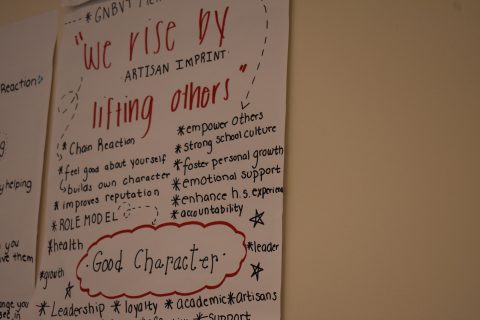 *GNBVT
"we rise by
ARTISAN IMPRINT
lifting others"
*Chain Reaction
*feel good about yourself
builds own character
*improves reputation
*ROLE MODEL
*health
*growth
*empower others
*strong school culture
*foster personal growth
*emotional support
*enhance h.s. experience
*accountability
*leader
·Good Character·
*Leadership *loyalty *academic *artisans
*support
Reaction
helping
you
them
change you
set in